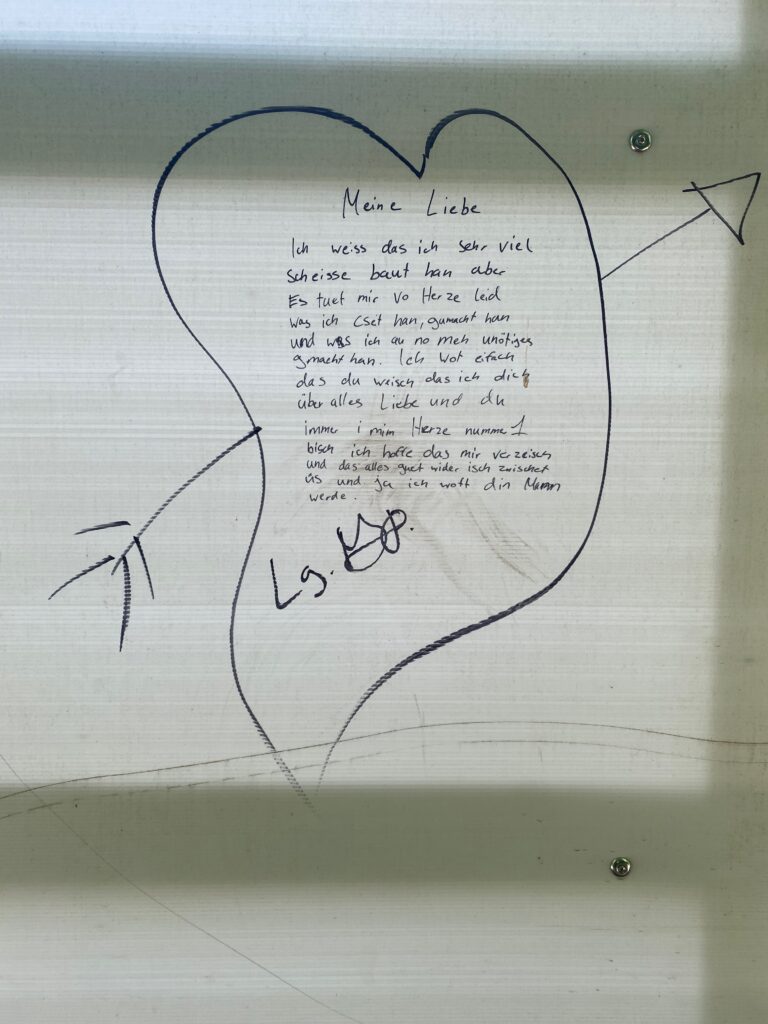 Meine Liebe
Ich weiss das ich sehr viel
Scheisse baut han aber
Es tuet mir vo Herze leid
was ich Cset han, gumacht han
und was ich au no meh unötiges
gmacht han. Ich wot eifach
das du weisch das ich dich
über alles Liebe und du
imme i mim Herze numme 1
bisch ich hoffe das mir verzeisch
und das alles guet wider isch zwischet
üs und ja ich wott din Mann
werde.
Lg.